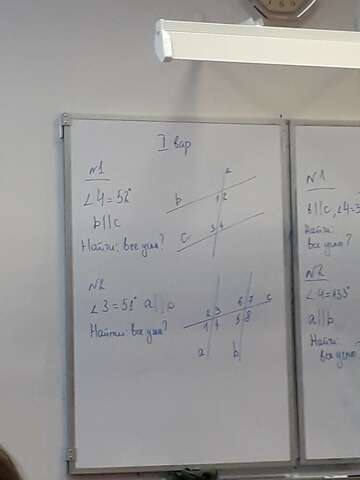 I вар
N1
∠4=52°
b||c
Найти: все углы?
a
b
1 2
c
3 4
N2
∠3=51° a||b
Найти: все углы?
2 3
6 7
c
1 4
5 8
a
b
N1
b||c, ∠4=3
Найти:
все углы?
N2
∠4=133°
a||b
Найти:
все углы